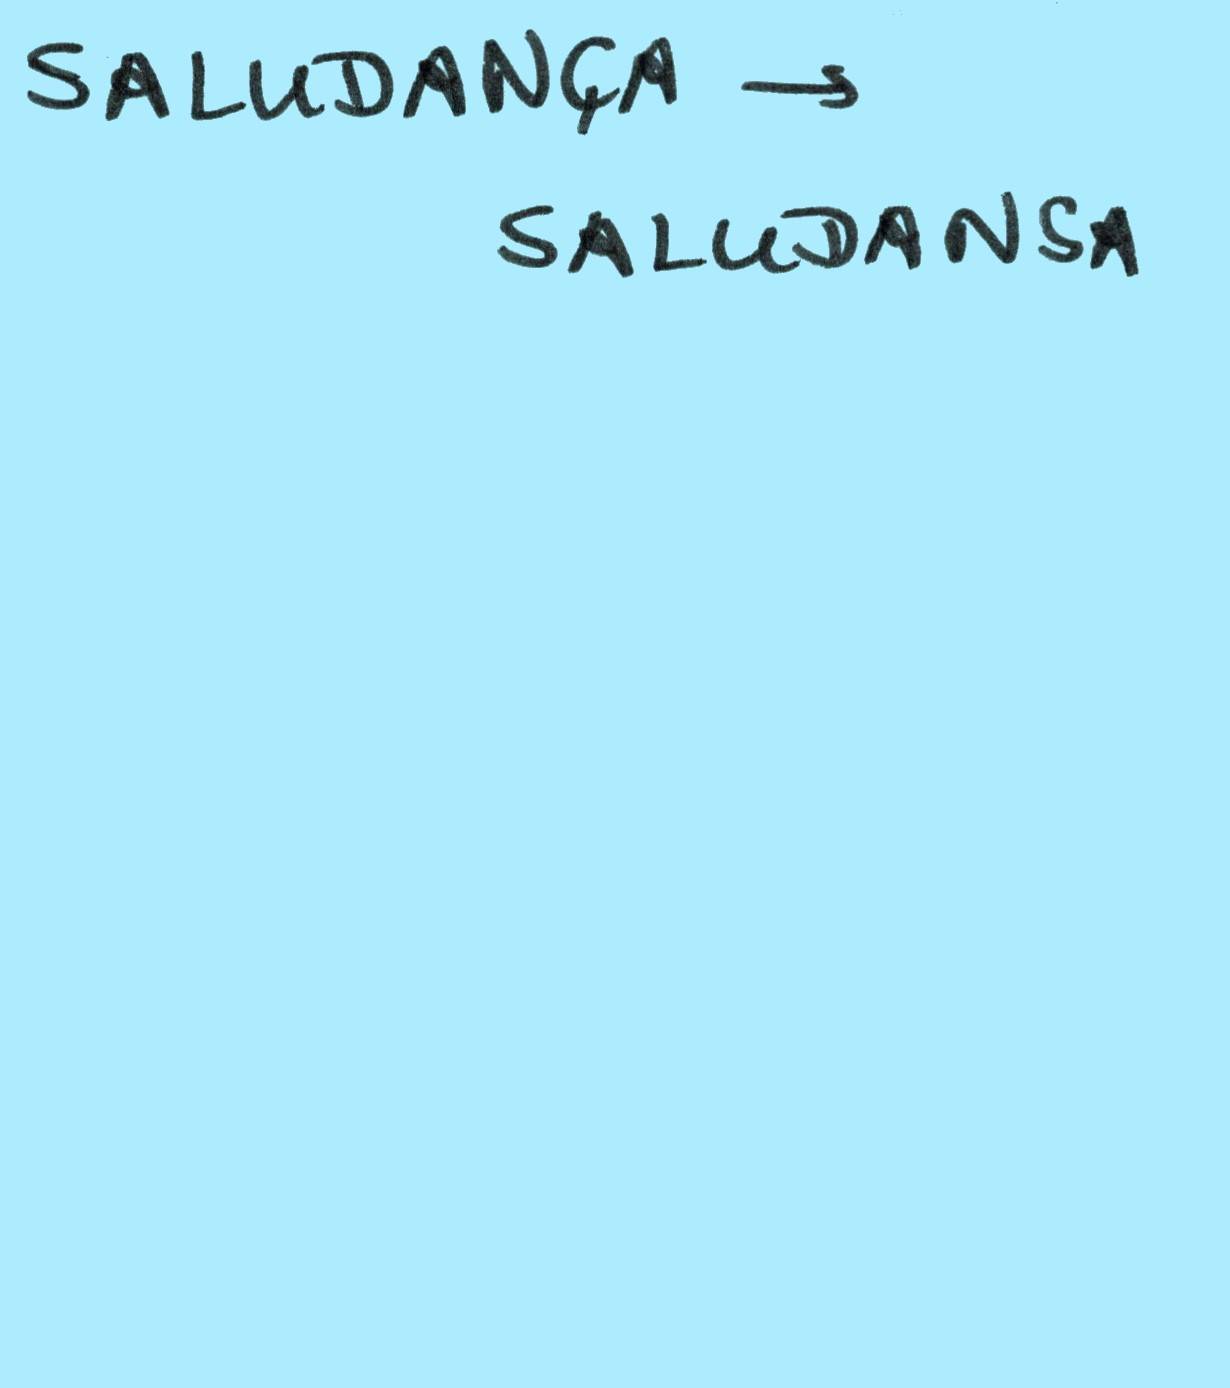 SALUDANÇA →
SALUDANSA